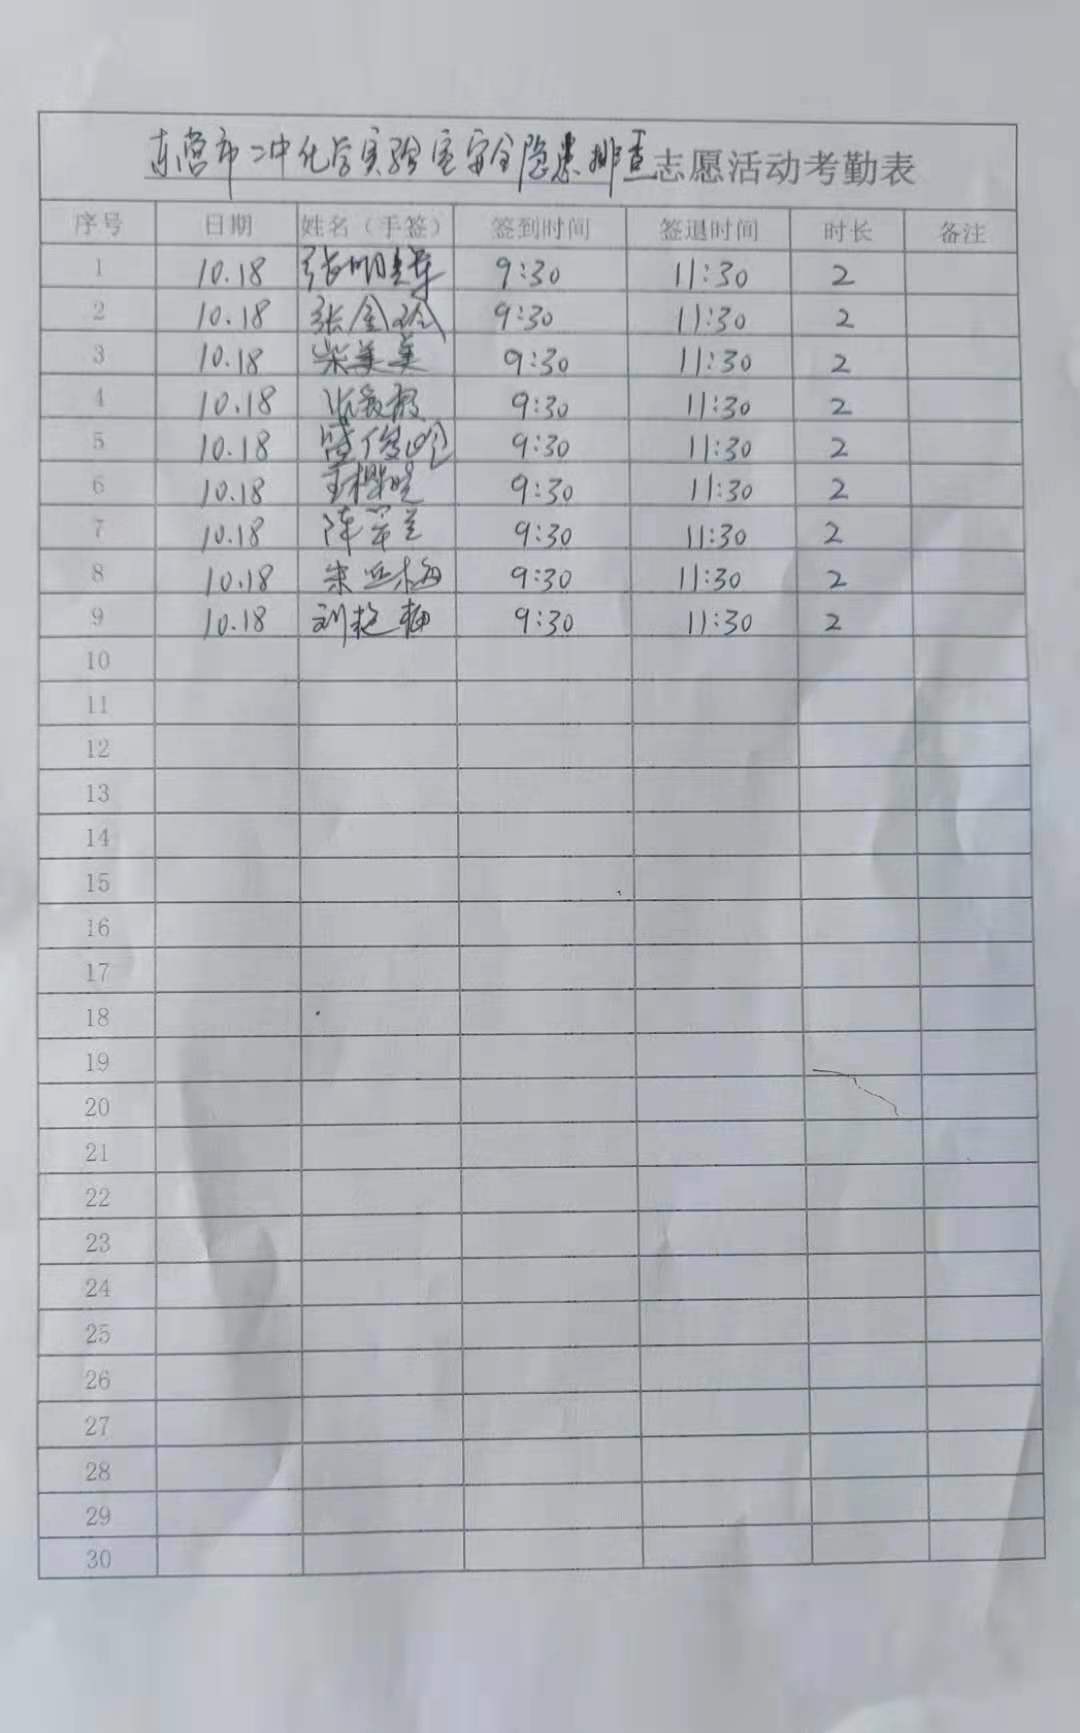 东营市二中化学实验室安全隐患排查志愿活动考勤表
序号 日期 姓名（手签） 签到时间 签退时间 时长 备注
1 10.18 张 9:30 11:30 2
2 10.18 张金玲 9:30 11:30 2
3 10.18 柴美美 9:30 11:30 2
4 10.18 9:30 11:30 2
5 10.18 9:30 11:30 2
6 10.18 王 9:30 11:30 2
7 10.18 陈翠兰 9:30 11:30 2
8 10.18 朱 梅 9:30 11:30 2
9 10.18 刘艳梅 9:30 11:30 2
10
11
12
13
14
15
16
17
18
19
20
21
22
23
24
25
26
27
28
29
30